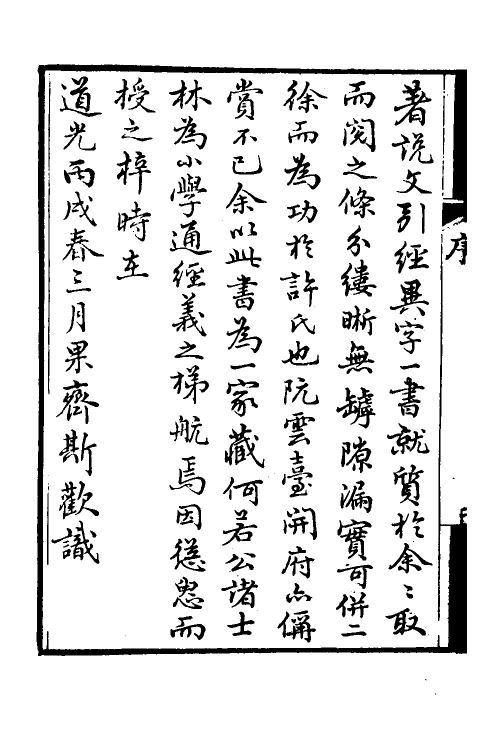 著説文引經異字一書就質於余〻取
而閱之條分縷晰無罅隙漏實可併二
徐而為功於許氏也阮雲臺開府亦偁
賞不已余以此書為一家藏何若公諸士
林為小學通經義之梯航焉因慫恿而
授之梓時在
道光丙戌春三月果齊斯歡識
序